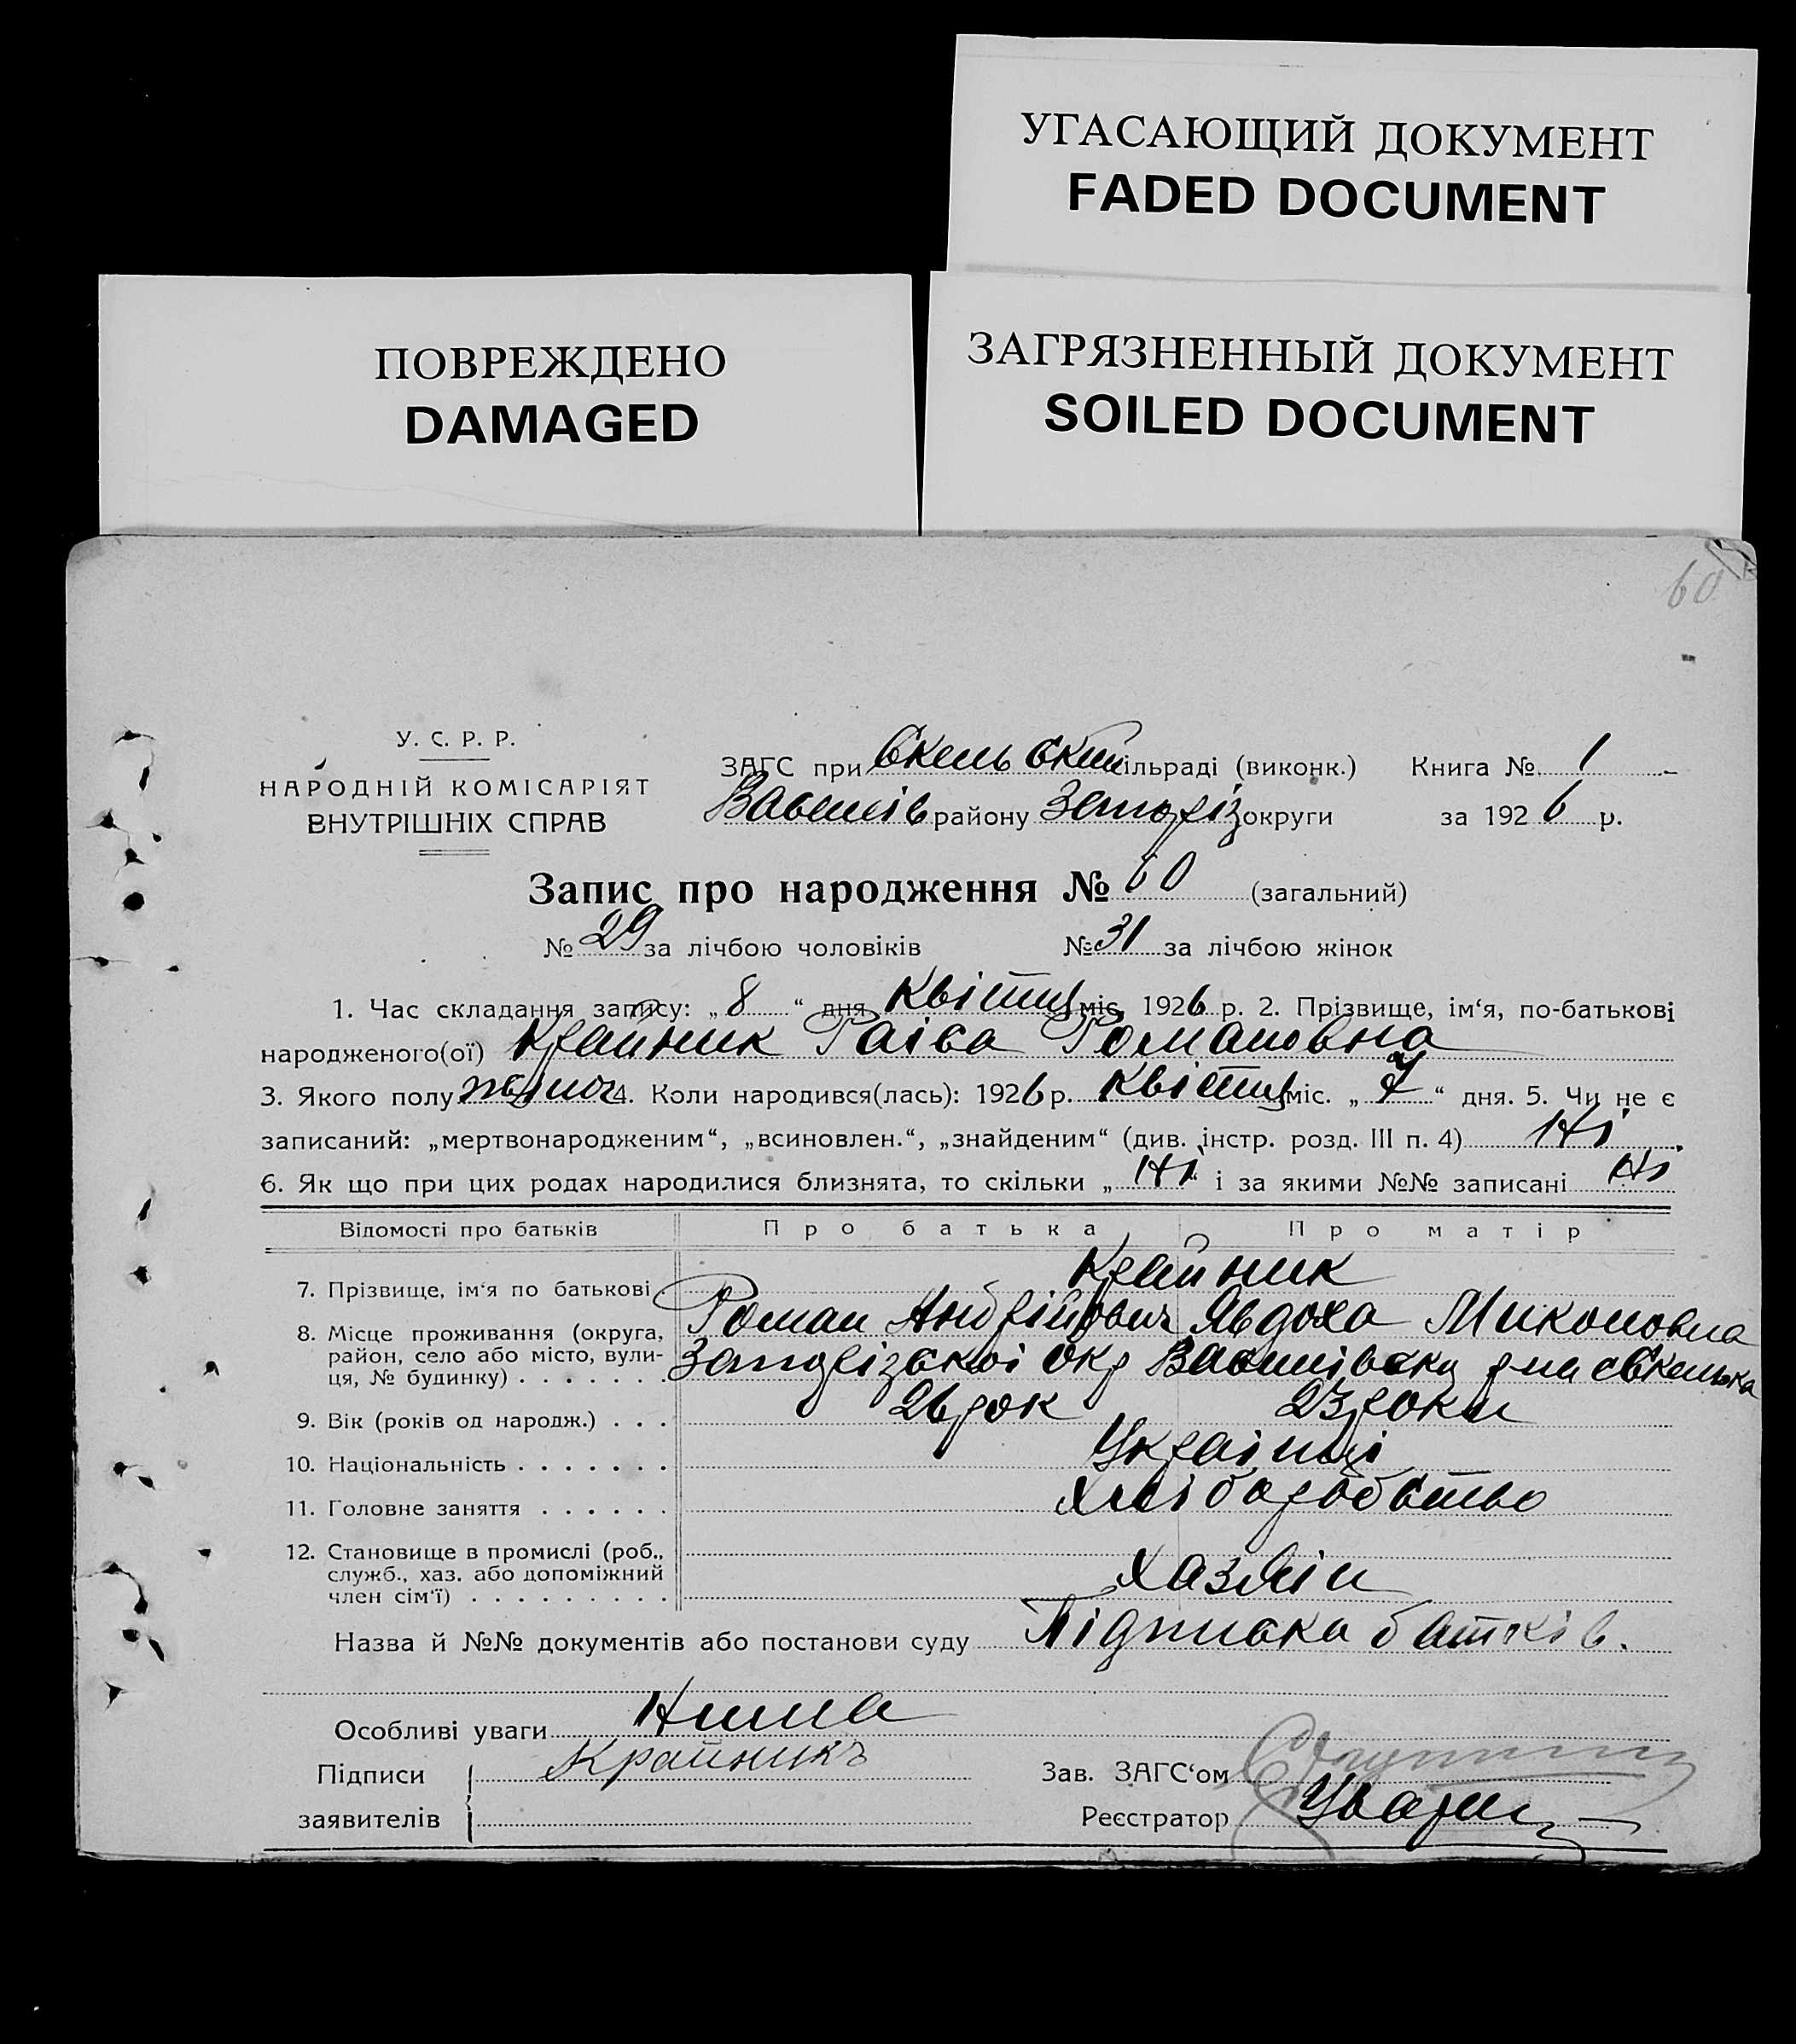 УГАСАЮЩИЙ ДОКУМЕНТ
FADED DOCUMENT
ПОВРЕЖДЕНО
DAMAGED
ЗАГРЯЗНЕННЫЙ ДОКУМЕНТ
SOILED DOCUMENT
60
У. С. Р. Р.
НАРОДНІЙ КОМІСАРІЯТ
ВНУТРІШНІХ СПРАВ
ЗАГС при Скельській сільраді (виконк.) Книга № 1
Василів району Запоріз округи за 1926 р.
Запис про народження № 60 (загальний)
№ 29 за лічбою чоловіків № 31 за лічбою жінок
1. Час складання запису: „8“ дня Квітня міс. 1926 р. 2. Прізвище, ім‘я, по-батькові
народженого(ої) Крайник Раіса Романовна
3. Якого полу жіноч 4. Коли народився(лась): 1926 р. Квітня міс. „7“ дня. 5. Чи не є
записаний: „мертвонародженим“, „всиновлен.“, „знайденим“ (див. інстр. розд. III п. 4) Ні.
6. Як що при цих родах народилися близнята, то скільки „Ні“ і за якими №№ записані Ні
Відомості про батьків Про батька Про матір
Крайник
7. Прізвище, ім‘я по батькові Роман Андрійович Явдоха Миконовна
8. Місце проживання (округа, район, село або місто, вулиця, № будинку) . . . . . . . Запорізської Окр Василівську с Скелька
9. Вік (років од народж.) . . . 26 рок 23 роки
10. Національність . . . . . . . Українці
11. Головне заняття . . . . . . Хліборобство
12. Становище в промислі (роб., служб., хаз. або допоміжний член сім‘ї) . . . . . . . . . Хазяін
Назва й №№ документів або постанови суду Підписка батьків.
Особливі уваги Нима
Підписи Крайникъ Зав. ЗАГС‘ом
заявителів Реєстратор